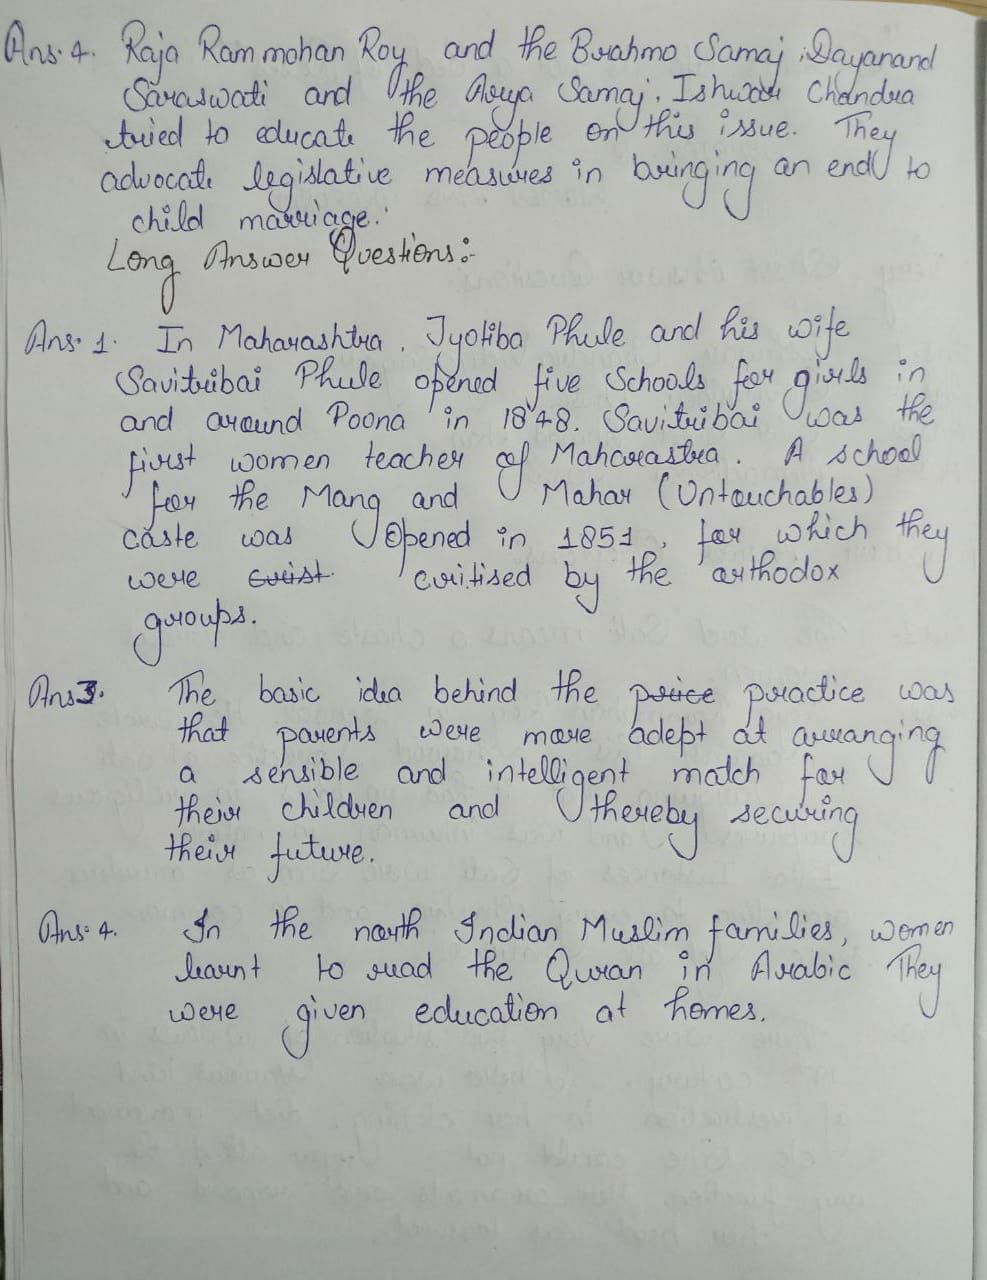 Ans. 4. Raja Ram mohan Roy and the Brahmo Samaj, Dayanand
Saraswati and the Arya Samaj, Ishwar Chandra
tried to educate the people on this issue. They
advocate legislative measures in bringing an end to
child marriage.
Long Answer Questions:-
Ans. 1. In Maharashtra, Jyotiba Phule and his wife
Savitribai Phule opened five Schools for girls in
and around Poona in 1848. Savitribai was the
first women teacher of Maharastra. A school
for the Mang and Mahar (Untouchables)
caste was Opened in 1851, for which they
were critised by the orthodox
groups.
Ans 3. The basic idea behind the price practice was
that parents were more adept at arranging
a sensible and intelligent match for
their children and thereby securing
their future.
Ans. 4. In the north Indian Muslim families, women
learnt to read the Quran in Arabic They
were given education at homes.